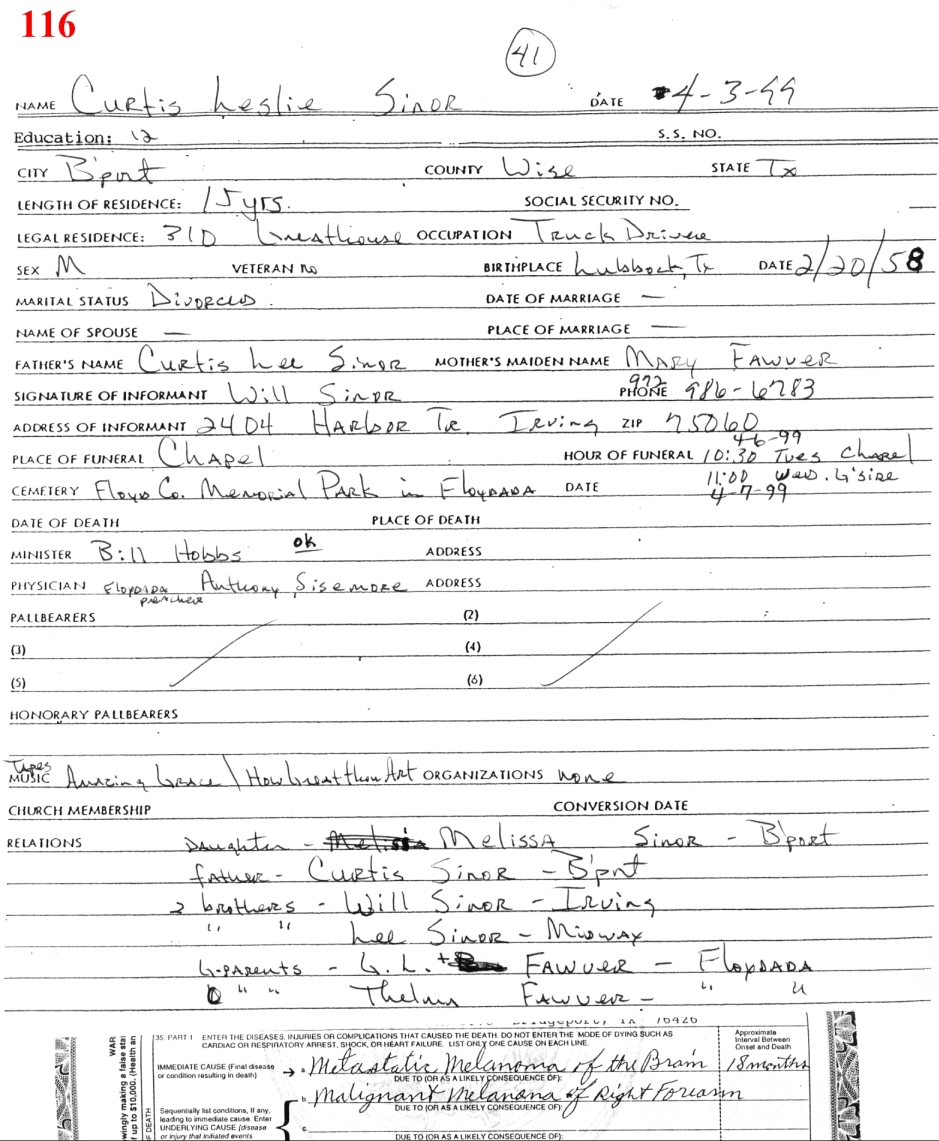 116
41
NAME Curtis Leslie Sinor DATE 4-3-99
Education: 12 S.S. NO.
CITY B'port COUNTY Wise STATE Tx
LENGTH OF RESIDENCE: 15 yrs. SOCIAL SECURITY NO.
LEGAL RESIDENCE: 310 Greathouse OCCUPATION Truck Driver
SEX M VETERAN no BIRTHPLACE Lubbock, Tx DATE 2/20/58
MARITAL STATUS Divorced DATE OF MARRIAGE —
NAME OF SPOUSE — PLACE OF MARRIAGE —
FATHER'S NAME Curtis Lee Sinor MOTHER'S MAIDEN NAME Mary Fawver
SIGNATURE OF INFORMANT Will Sinor PHONE 972 986-6783
ADDRESS OF INFORMANT 2404 Harbor Irving ZIP 75060
4-6-99
PLACE OF FUNERAL Chapel HOUR OF FUNERAL 10:30 Tues Chapel
11:00 Wed. G'side
CEMETERY Floyd Co. Memorial Park in Floydada DATE 4-7-99
DATE OF DEATH PLACE OF DEATH
MINISTER Bill Hobbs ok ADDRESS
PHYSICIAN Floydada preacher Anthony Sisemore ADDRESS
PALLBEARERS (2)
(3) (4)
(5) (6)
HONORARY PALLBEARERS
Tapes
MUSIC Amazing Grace \ How Great thou Art ORGANIZATIONS none
CHURCH MEMBERSHIP CONVERSION DATE
RELATIONS Daughter - Melissa Sinor - B'port
father - Curtis Sinor - B'port
2 brothers - Will Sinor - Irving
" " Lee Sinor - Midway
G-parents - G. L. + Fawver - Floydada
" " Thelma Fawver - " "
Bridgeport, TX 76426
35. PART 1 ENTER THE DISEASES, INJURIES OR COMPLICATIONS THAT CAUSED THE DEATH. DO NOT ENTER THE MODE OF DYING SUCH AS
CARDIAC OR RESPIRATORY ARREST, SHOCK, OR HEART FAILURE. LIST ONLY ONE CAUSE ON EACH LINE.
Approximate
Interval Between
Onset and Death
IMMEDIATE CAUSE (Final disease
or condition resulting in death) → a. Metastatic Melanoma of the Brain 18 months
DUE TO (OR AS A LIKELY CONSEQUENCE OF):
b. Malignant Melanoma of Right Forearm
DUE TO (OR AS A LIKELY CONSEQUENCE OF):
Sequentially list conditions, if any,
leading to immediate cause. Enter
UNDERLYING CAUSE (disease
or injury that initiated events
c.
DUE TO (OR AS A LIKELY CONSEQUENCE OF):
WAR
wingly making a false sta
f up to $10,000. (Health an
F DEATH